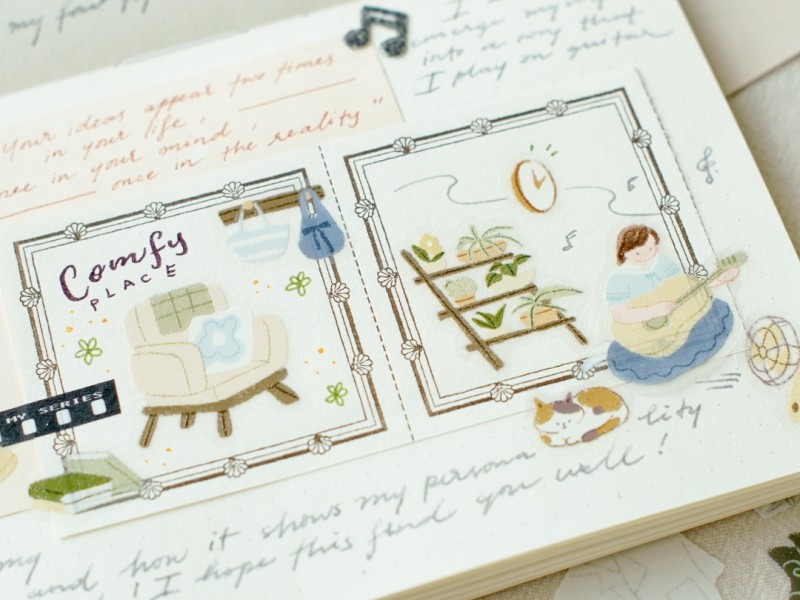 my fa
I
emerge myself
into a song that
I play on guitar
Your ideas appear two times
in your life,
once in your mind,
once in the reality"
Comfy
PLACE
MY SERIES
my
and how it shows my persona lity
! I hope this find you well!